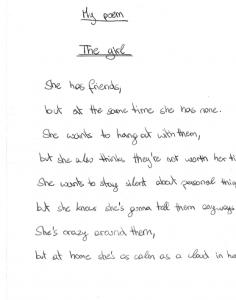 My poem
The girl
She has friends,
but at the same time she has none.
She wants to hang out with them,
but she also thinks they're not worth her ti
She wants to stay silent about personal thing
but she knows she's gonna tell them anyways
She's crazy around them,
but at home she's as calm as a cloud in